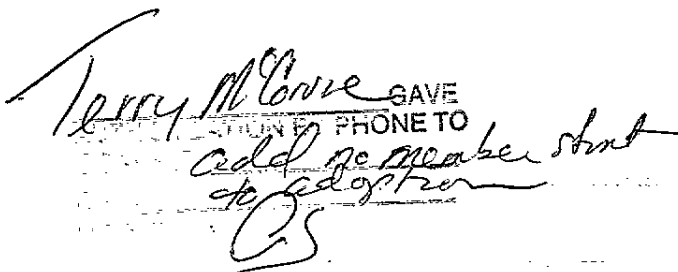 Terry McCorvie GAVE
PHONE TO
add no member stmt
to adoption
CS